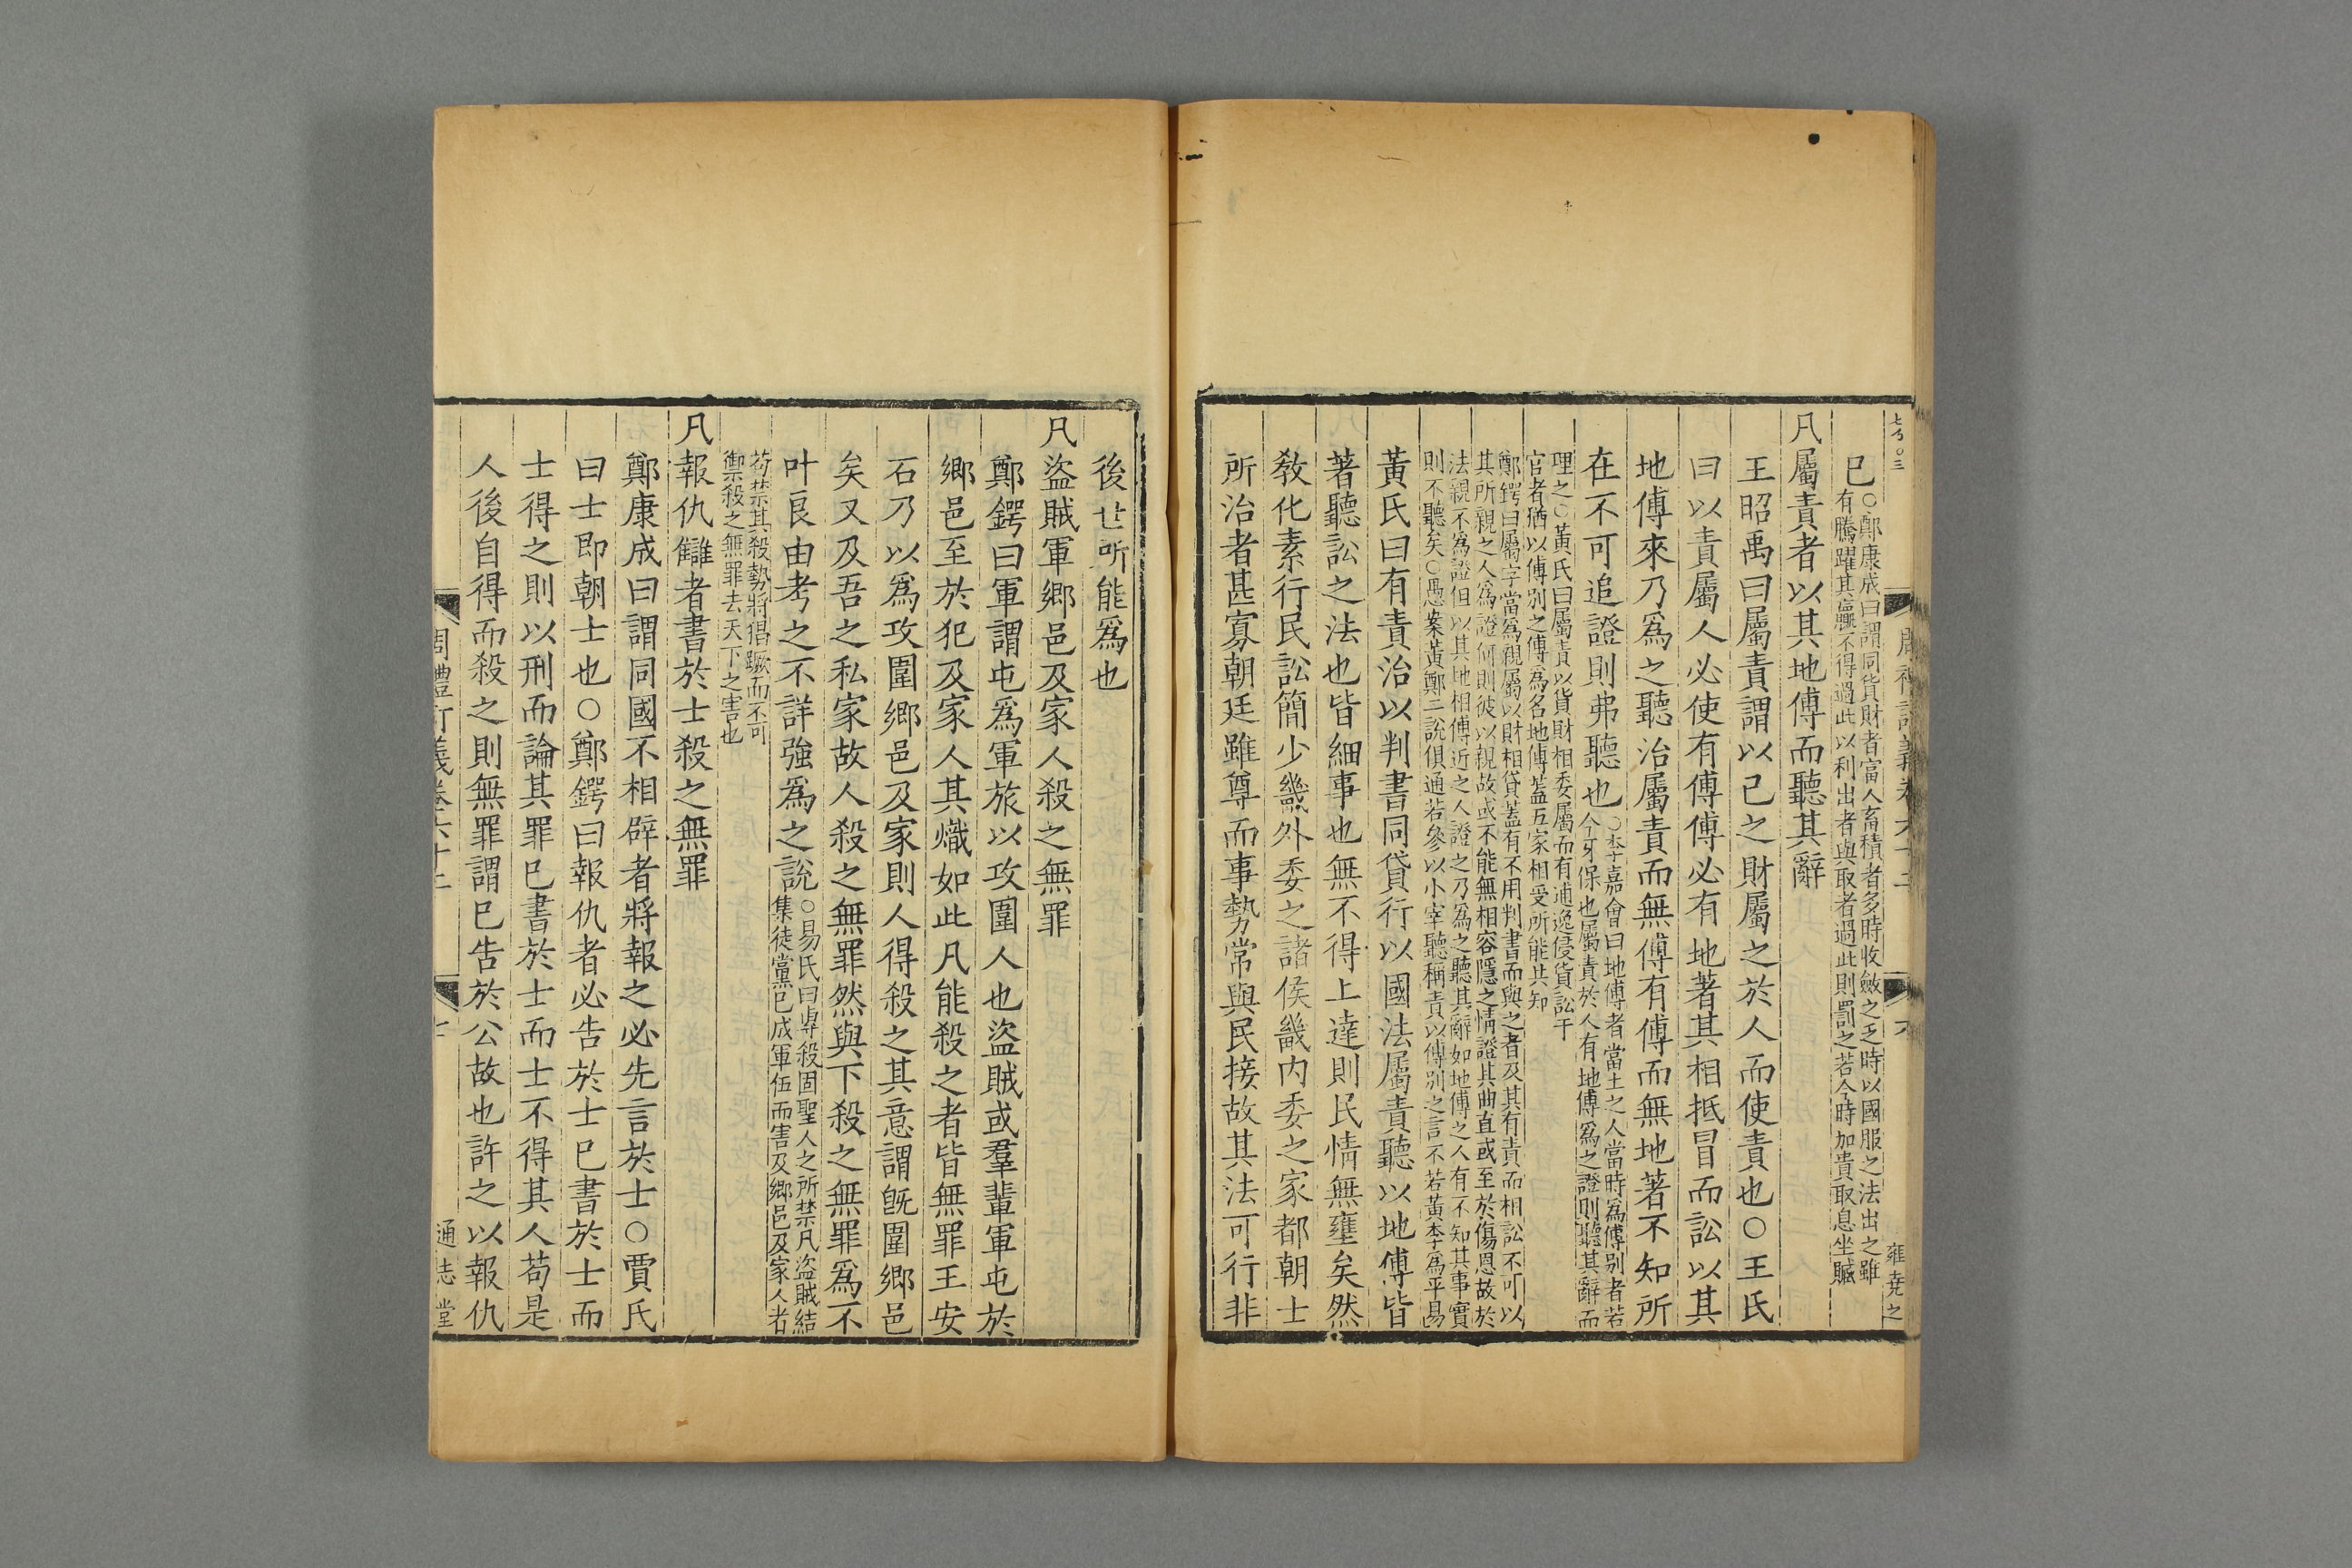 巳○鄭康成曰謂同貨財者富人畜積者多時收斂之乏時以國服之法出之雖
有騰躍其贏不得過此以利出者與取者過此則罰之若今時加貴取息坐贓
凡屬責者以其地傅而聽其辭
王昭禹曰屬責謂以已之財屬之於人而使責也○王氏
曰以責屬人必使有傅傅必有地著其相抵冒而訟以其
地傅來乃爲之聽治屬責而無傅有傅而無地著不知所
在不可追證則弗聽也○李嘉會曰地傅者當土之人當時爲傅別者若
今牙保也屬責於人有地傅爲之證則聽其辭而
理之○黃氏曰屬責以貨財相委屬而有逋逸侵貨訟于
官者猶以傅別之傅爲名地傅蓋五家相受所能共知
鄭鍔曰屬字當爲親屬以財相貸蓋有不用判書而與之者及其有責而相訟不可以
其所親之人爲證何則彼以親故或不能無相容隱之情證其曲直或至於傷恩故於
法親不爲證但以其地相傅近之人證之乃爲之聽其辭如地傅之人有不知其事實
則不聽矣○愚案黃鄭二說俱通若參以小宰聽稱責以傅別之言不若黃李爲平易
黃氏曰有責治以判書同貸行以國法屬責聽以地傅皆
著聽訟之法也皆細事也無不得上達則民情無壅矣然
敎化素行民訟簡少畿外委之諸侯畿内委之家都朝士
所治者甚寡朝廷雖尊而事勢常與民接故其法可行非
雍堯之
後世所能爲也
凡盜賊軍鄉邑及家人殺之無罪
鄭鍔曰軍謂屯爲軍旅以攻圍人也盜賊或羣輩軍屯於
鄉邑至於犯及家人其熾如此凡能殺之者皆無罪王安
石乃以爲攻圍鄉邑及家則人得殺之其意謂旣圍鄉邑
矣又及吾之私家故人殺之無罪然與下殺之無罪爲不
叶良由考之不詳強爲之說○易氏曰專殺固聖人之所禁凡盜賊結
集徒黨已成軍伍而害及鄉邑及家人者
苟禁其殺勢將倡蹶而不可
禦殺之無罪去天下之害也
凡報仇讎者書於士殺之無罪
鄭康成曰謂同國不相辟者將報之必先言於士○賈氏
曰士即朝士也○鄭鍔曰報仇者必告於士巳書於士而
士得之則以刑而論其罪巳書於士而士不得其人苟是
人後自得而殺之則無罪謂巳告於公故也許之以報仇
周禮訂義卷六十二
通志堂